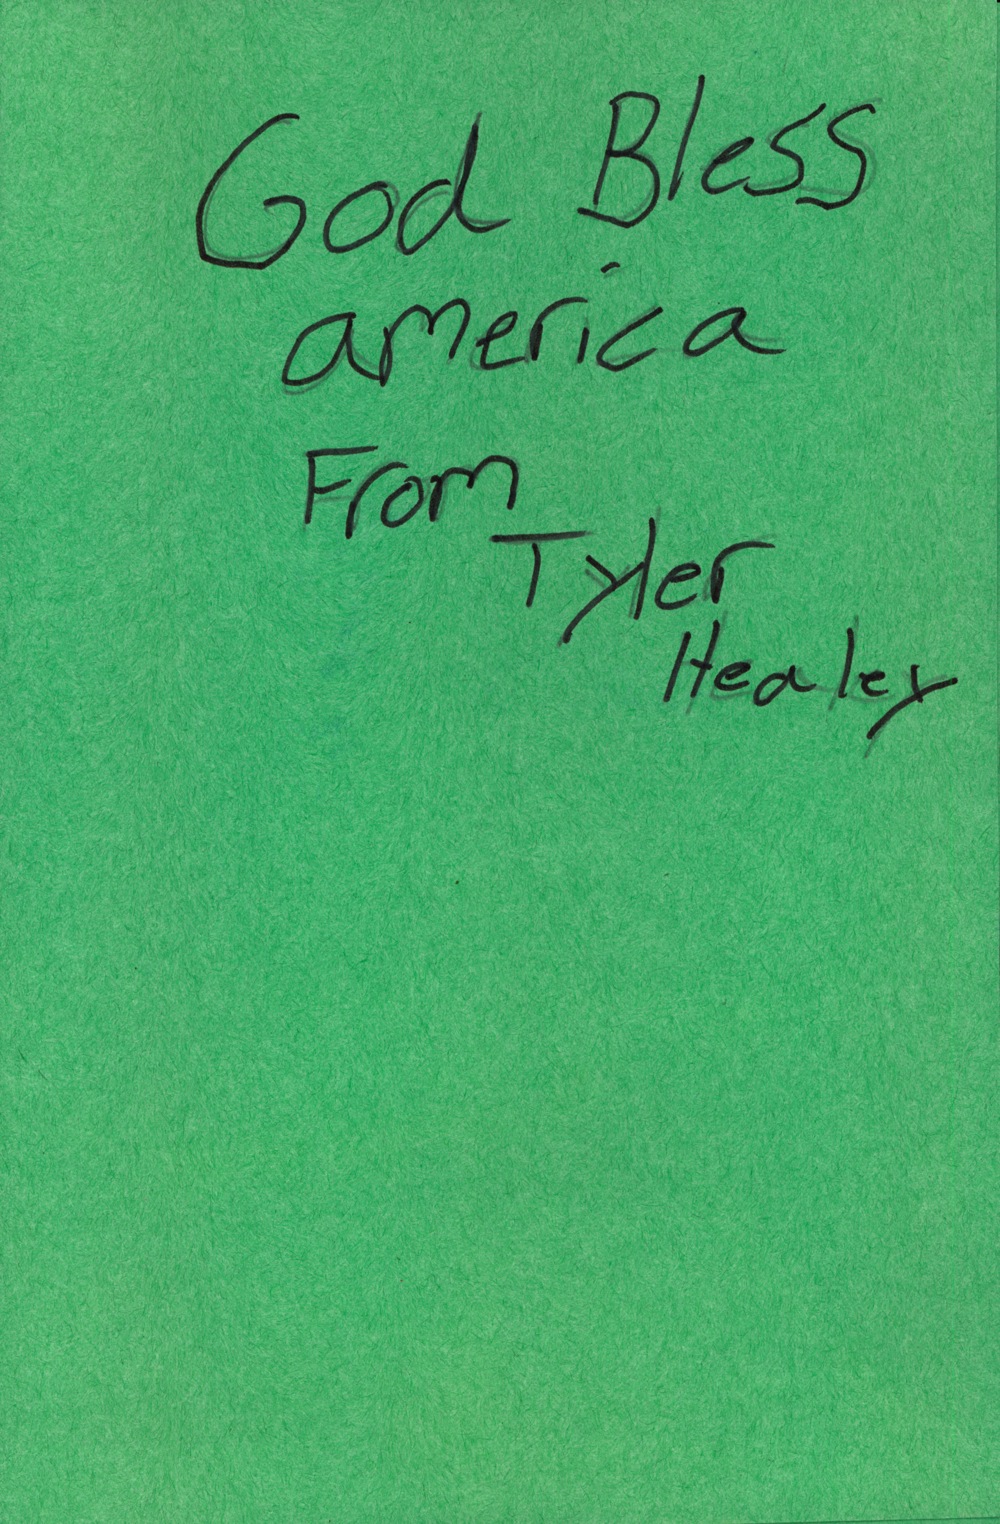 God Bless
america
From
Tyler
Healey